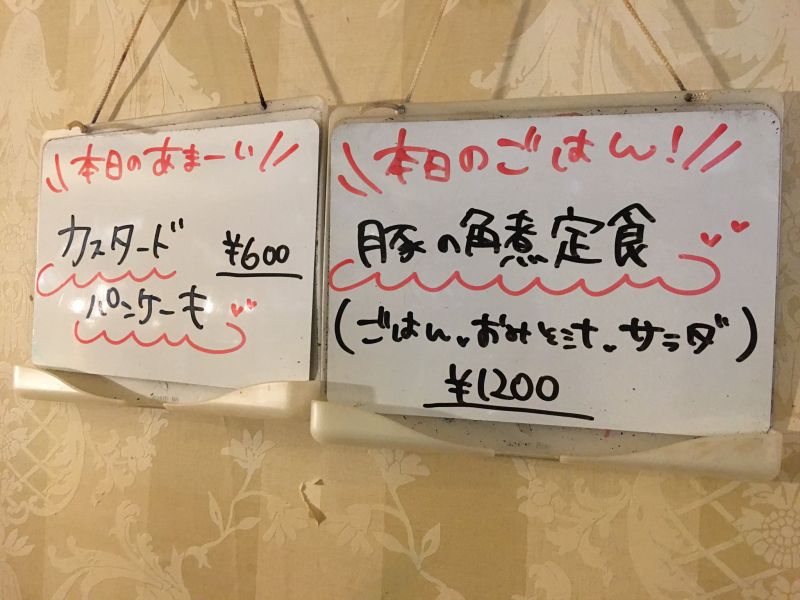 本日のあまーい
カスタード
¥600
パンケーキ
本日のごはん!
豚の角煮定食
(ごはん、おみそ汁、サラダ)
¥1200